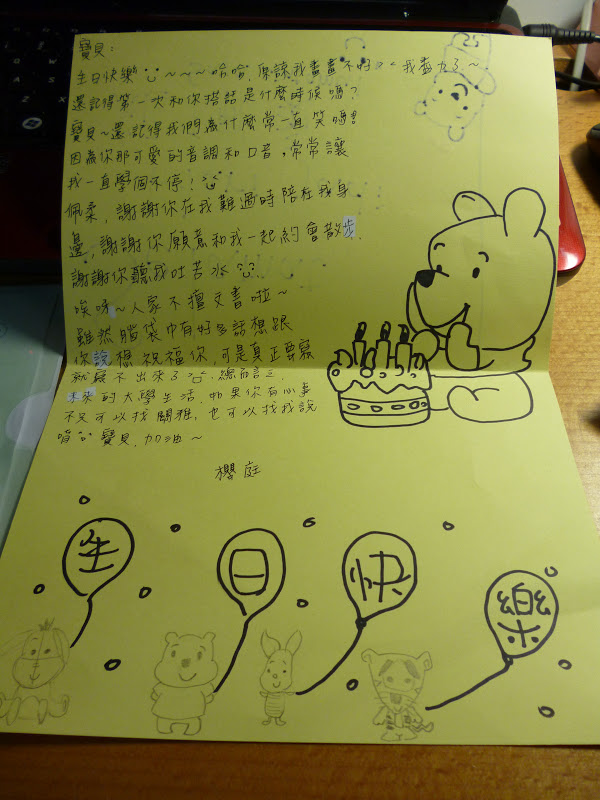 寶貝：
生日快樂～～～哈哈，原諒我畫畫不好，我盡力了～
還記得第一次和你搭話是什麼時候嗎？
寶貝～還記得我們為什麼常一直笑嗎？
因為你那可愛的音調和口音，常常讓
我一直學個不停！
佩柔，謝謝你在我難過時陪在我身
邊，謝謝你願意和我一起約會散步，
謝謝你聽我吐苦水
唉呀～人家不擅文書啦～
雖然腦袋中有好多話想跟
你說想祝福你，可是真正要寫
就寫不出來了，總而言之，
未來的大學生活，如果你有心事
不只可以找關雅，也可以找我說
唷 寶貝，加油～
櫻庭
生
日
快
樂